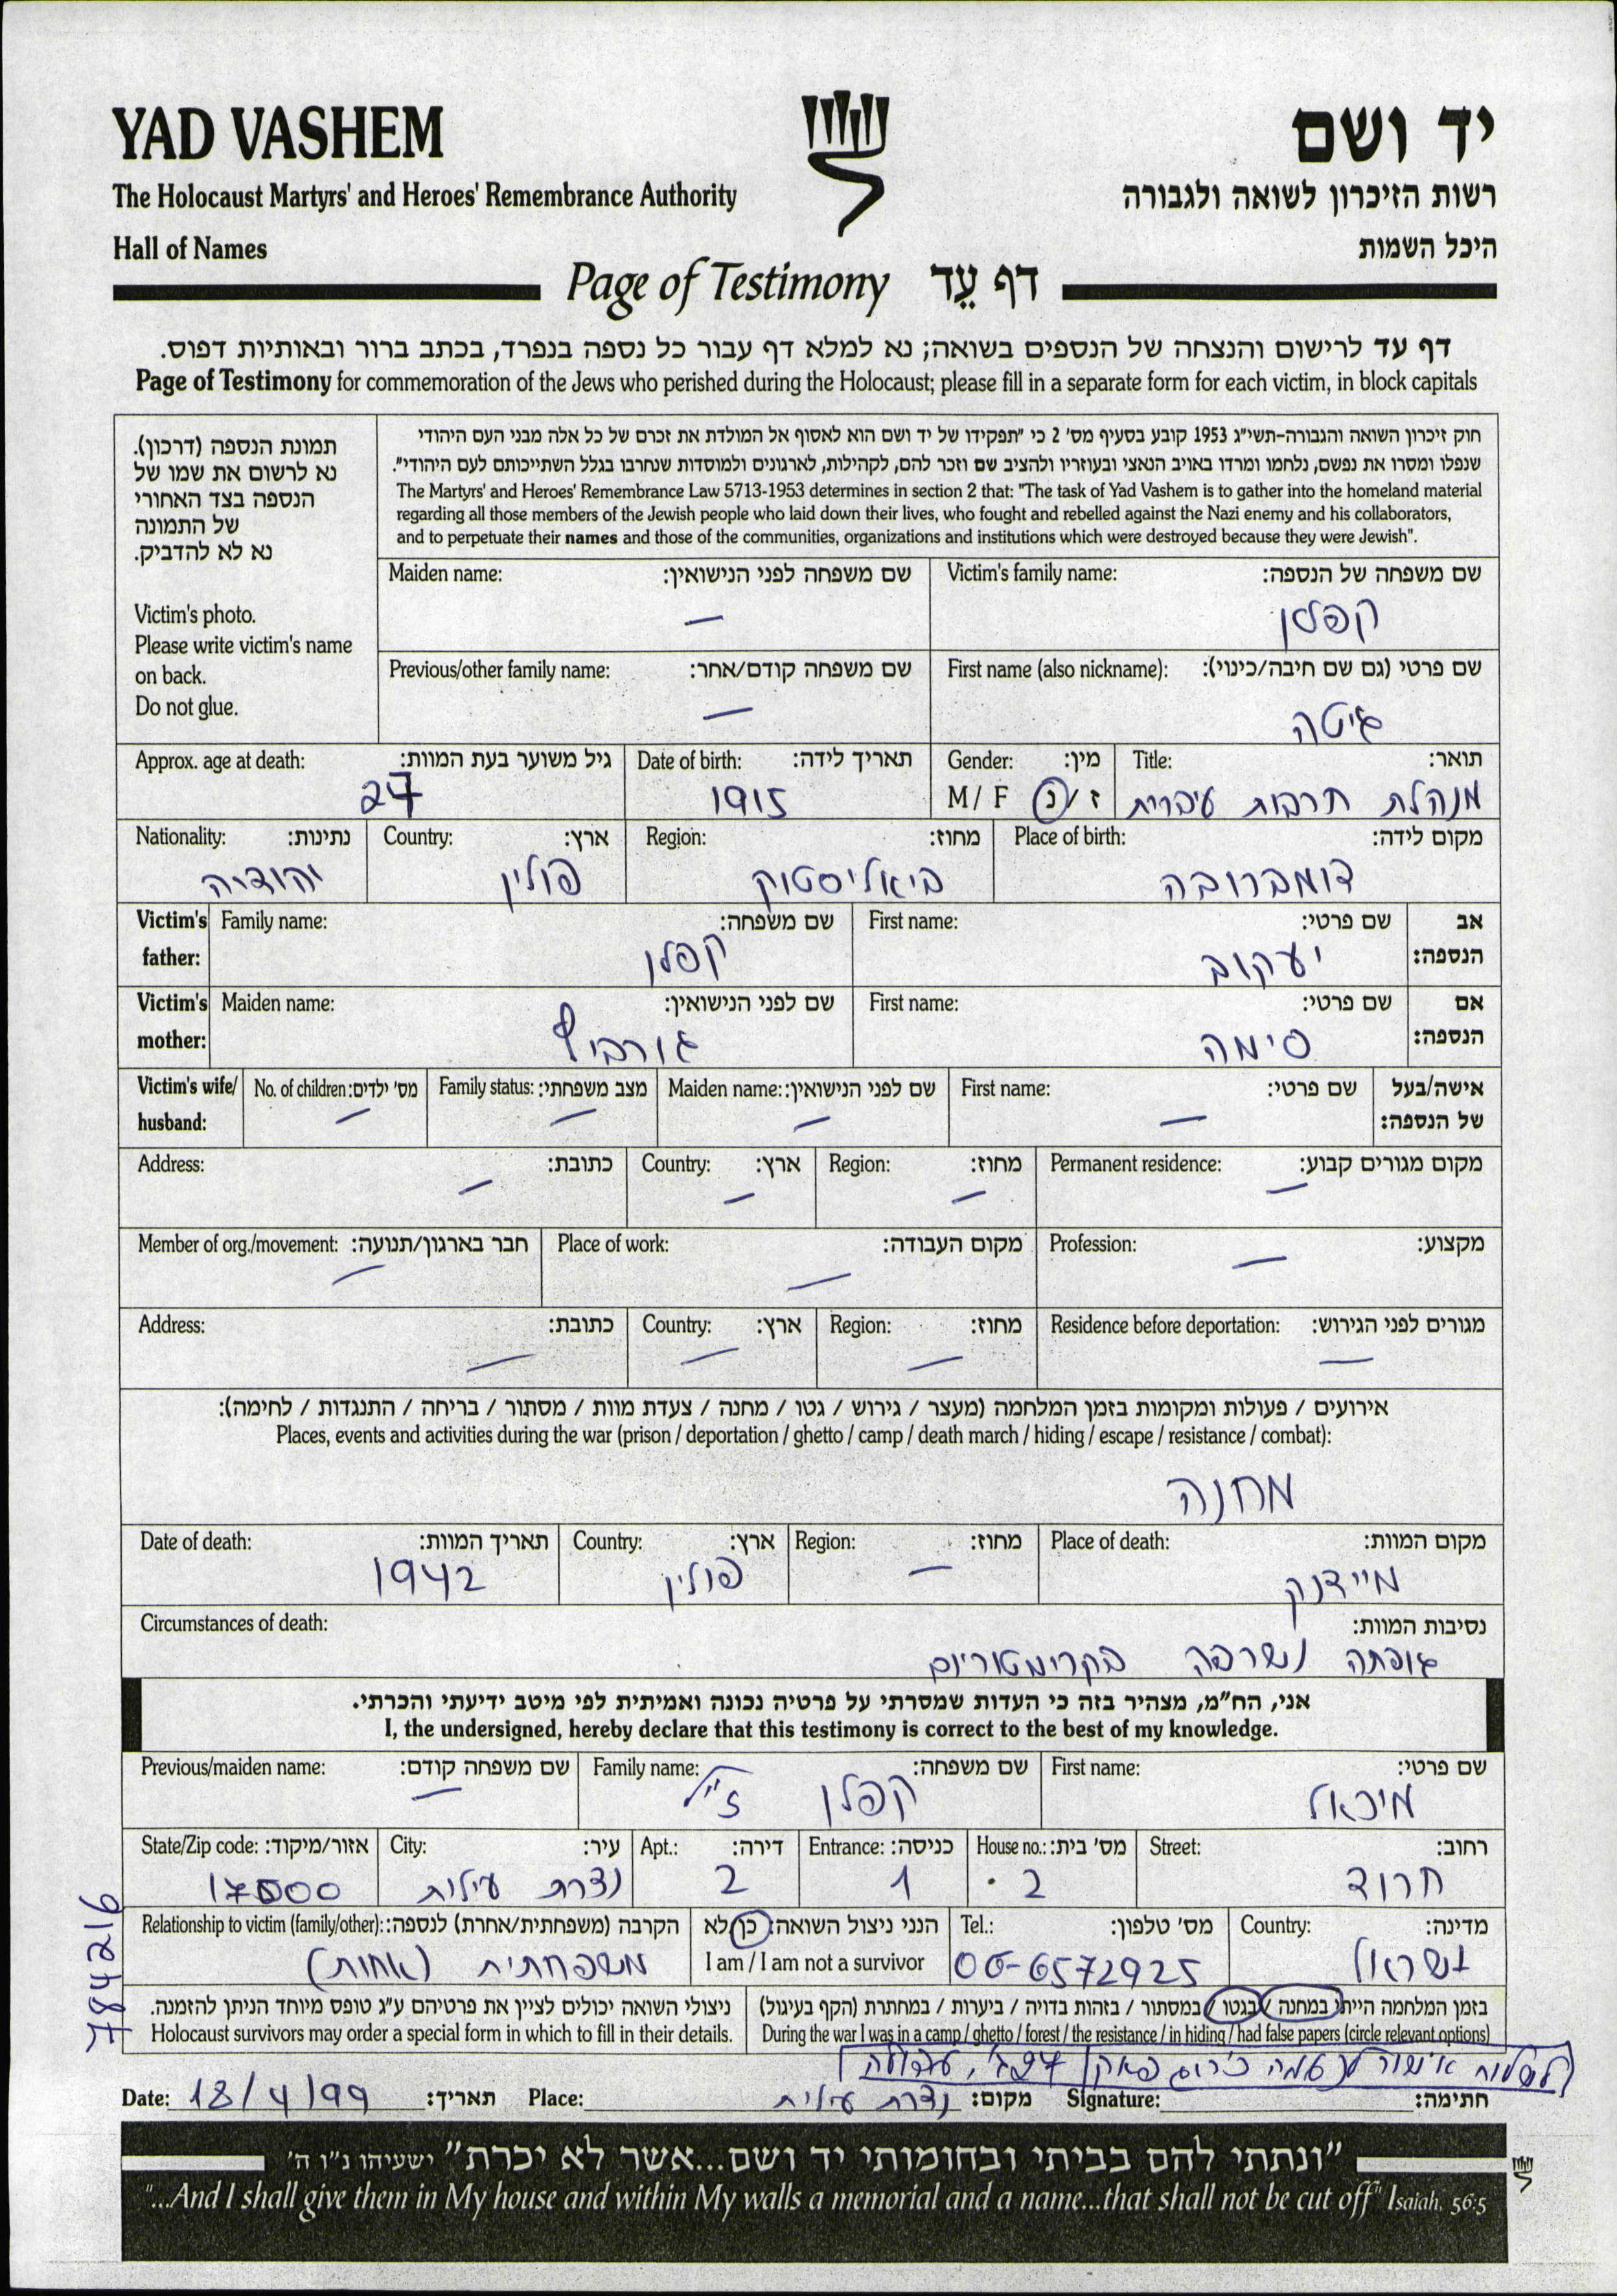 YAD VASHEM
יד ושם
The Holocaust Martyrs' and Heroes' Remembrance Authority
רשות הזיכרון לשואה ולגבורה
Hall of Names
היכל השמות
Page of Testimony דף עֵד
דף עד לרישום והנצחה של הנספים בשואה; נא למלא דף עבור כל נספה בנפרד, בכתב ברור ובאותיות דפוס.
Page of Testimony for commemoration of the Jews who perished during the Holocaust; please fill in a separate form for each victim, in block capitals
תמונת הנספה (דרכון).
נא לרשום את שמו של
הנספה בצד האחורי
של התמונה
נא לא להדביק.
Victim's photo.
Please write victim's name
on back.
Do not glue.
חוק זיכרון השואה והגבורה-תשי"ג 1953 קובע בסעיף מס' 2 כי "תפקידו של יד ושם הוא לאסוף אל המולדת את זכרם של כל אלה מבני העם היהודי
שנפלו ומסרו את נפשם, נלחמו ומרדו באויב הנאצי ובעוזריו ולהציב שם וזכר להם, לקהילות, לארגונים ולמוסדות שנחרבו בגלל השתייכותם לעם היהודי".
The Martyrs' and Heroes' Remembrance Law 5713-1953 determines in section 2 that: "The task of Yad Vashem is to gather into the homeland material
regarding all those members of the Jewish people who laid down their lives, who fought and rebelled against the Nazi enemy and his collaborators,
and to perpetuate their names and those of the communities, organizations and institutions which were destroyed because they were Jewish".
Victim's family name: שם משפחה של הנספה:
קפלן
Maiden name: שם משפחה לפני הנישואין:
—
First name (also nickname): שם פרטי (גם שם חיבה/כינוי):
גיטה
Previous/other family name: שם משפחה קודם/אחר:
—
Title: תואר:
מנהלת תרבות עיברית
Gender: מין:
M / F ז / נ
Date of birth: תאריך לידה:
1915
Approx. age at death: גיל משוער בעת המוות:
27
Place of birth: מקום לידה:
דומברובה
Region: מחוז:
ביאליסטוק
Country: ארץ:
פולין
Nationality: נתינות:
יהודיה
Victim's father: אב הנספה:
First name: שם פרטי:
יעקוב
Family name: שם משפחה:
קפלן
Victim's mother: אם הנספה:
First name: שם פרטי:
סימה
Maiden name: שם לפני הנישואין:
גורביץ
Victim's wife/ husband: אישה/בעל של הנספה:
First name: שם פרטי:
—
Maiden name: שם לפני הנישואין:
—
Family status: מצב משפחתי:
—
No. of children: מס' ילדים:
—
Permanent residence: מקום מגורים קבוע:
—
Region: מחוז:
—
Country: ארץ:
—
Address: כתובת:
—
Profession: מקצוע:
—
Place of work: מקום העבודה:
—
Member of org./movement: חבר בארגון/תנועה:
—
Residence before deportation: מגורים לפני הגירוש:
—
Region: מחוז:
—
Country: ארץ:
—
Address: כתובת:
—
אירועים / פעולות ומקומות בזמן המלחמה (מעצר / גירוש / גטו / מחנה / צעדת מוות / מסתור / בריחה / התנגדות / לחימה):
Places, events and activities during the war (prison / deportation / ghetto / camp / death march / hiding / escape / resistance / combat):
מחנה
Place of death: מקום המוות:
מיידנק
Region: מחוז:
—
Country: ארץ:
פולין
Date of death: תאריך המוות:
1942
Circumstances of death: נסיבות המוות:
גופתה נשרפה בקרימטוריום
אני, הח"מ, מצהיר בזה כי העדות שמסרתי על פרטיה נכונה ואמיתית לפי מיטב ידיעתי והכרתי.
I, the undersigned, hereby declare that this testimony is correct to the best of my knowledge.
First name: שם פרטי:
מיכאל
Family name: שם משפחה:
קפלן ז"ל
Previous/maiden name: שם משפחה קודם:
—
Street: רחוב:
חרוד
House no.: מס' בית:
2
Entrance: כניסה:
1
Apt.: דירה:
2
City: עיר:
נצרת עילית
State/Zip code: אזור/מיקוד:
17500
Country: מדינה:
ישראל
Tel.: מס' טלפון:
06-6572925
הנני ניצול השואה: כן/לא
I am / I am not a survivor
Relationship to victim (family/other): הקרבה (משפחתית/אחרת) לנספה:
משפחתית (אחות)
בזמן המלחמה הייתי במחנה / בגטו / במסתור / בזהות בדויה / ביערות / במחתרת (הקף בעיגול)
During the war I was in a camp / ghetto / forest / the resistance / in hiding / had false papers (circle relevant options)
ניצולי השואה יכולים לציין את פרטיהם ע"ג טופס מיוחד הניתן להזמנה.
Holocaust survivors may order a special form in which to fill in their details.
784216
לשלוח אישור ל
Date: 18/4/99 תאריך:
Place: נצרת עילית מקום:
Signature: חתימה:
"ונתתי להם בביתי ובחומותי יד ושם...אשר לא יכרת" ישעיהו נ"ו ה'
"...And I shall give them in My house and within My walls a memorial and a name...that shall not be cut off" Isaiah, 56:5